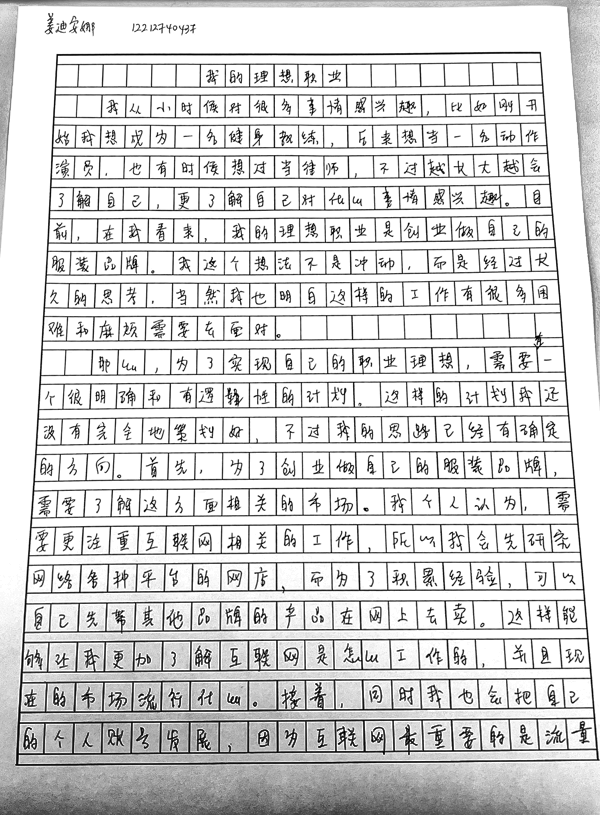 姜迪安娜 12212740437
我的理想职业
我从小时候对很多事情感兴趣，比如刚开
始我想成为一名健身教练，后来想当一名动作
演员，也有时候想过当律师，不过越长大越会
了解自己，更了解自己对什么事情感兴趣。目
前，在我看来，我的理想职业是创业做自己的
服装品牌。我这个想法不是冲动，而是经过长
久的思考，当然我也明白这样的工作有很多困
难和麻烦需要去面对。
那么，为了实现自己的职业理想，需要一
个很明确和有逻辑性的计划。这样的计划我还
没有完全地策划好，不过我的思路已经有确定
的方向。首先，为了创业做自己的服装品牌，
需要了解这方面相关的市场。我个人认为，需
要更注重互联网相关的工作，所以我会先研究
网络各种平台的网店，而为了积累经验，可以
自己先带其他品牌的产品在网上去卖。这样能
够让我更加了解互联网是怎么工作的，并且现
在的市场流行什么。接着，同时我也会把自己
的个人账号发展，因为互联网最重要的是流量